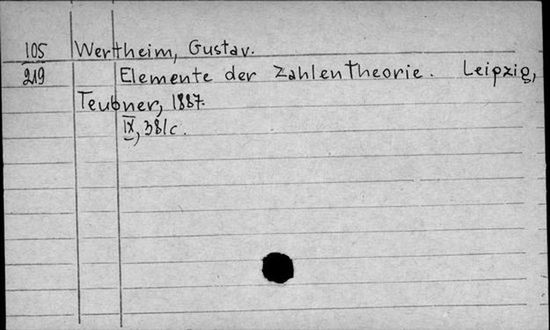 105 Wertheim, Gustav.
219 Elemente der Zahlentheorie. Leipzig,
Teubner, 1887.
IX, 381c.